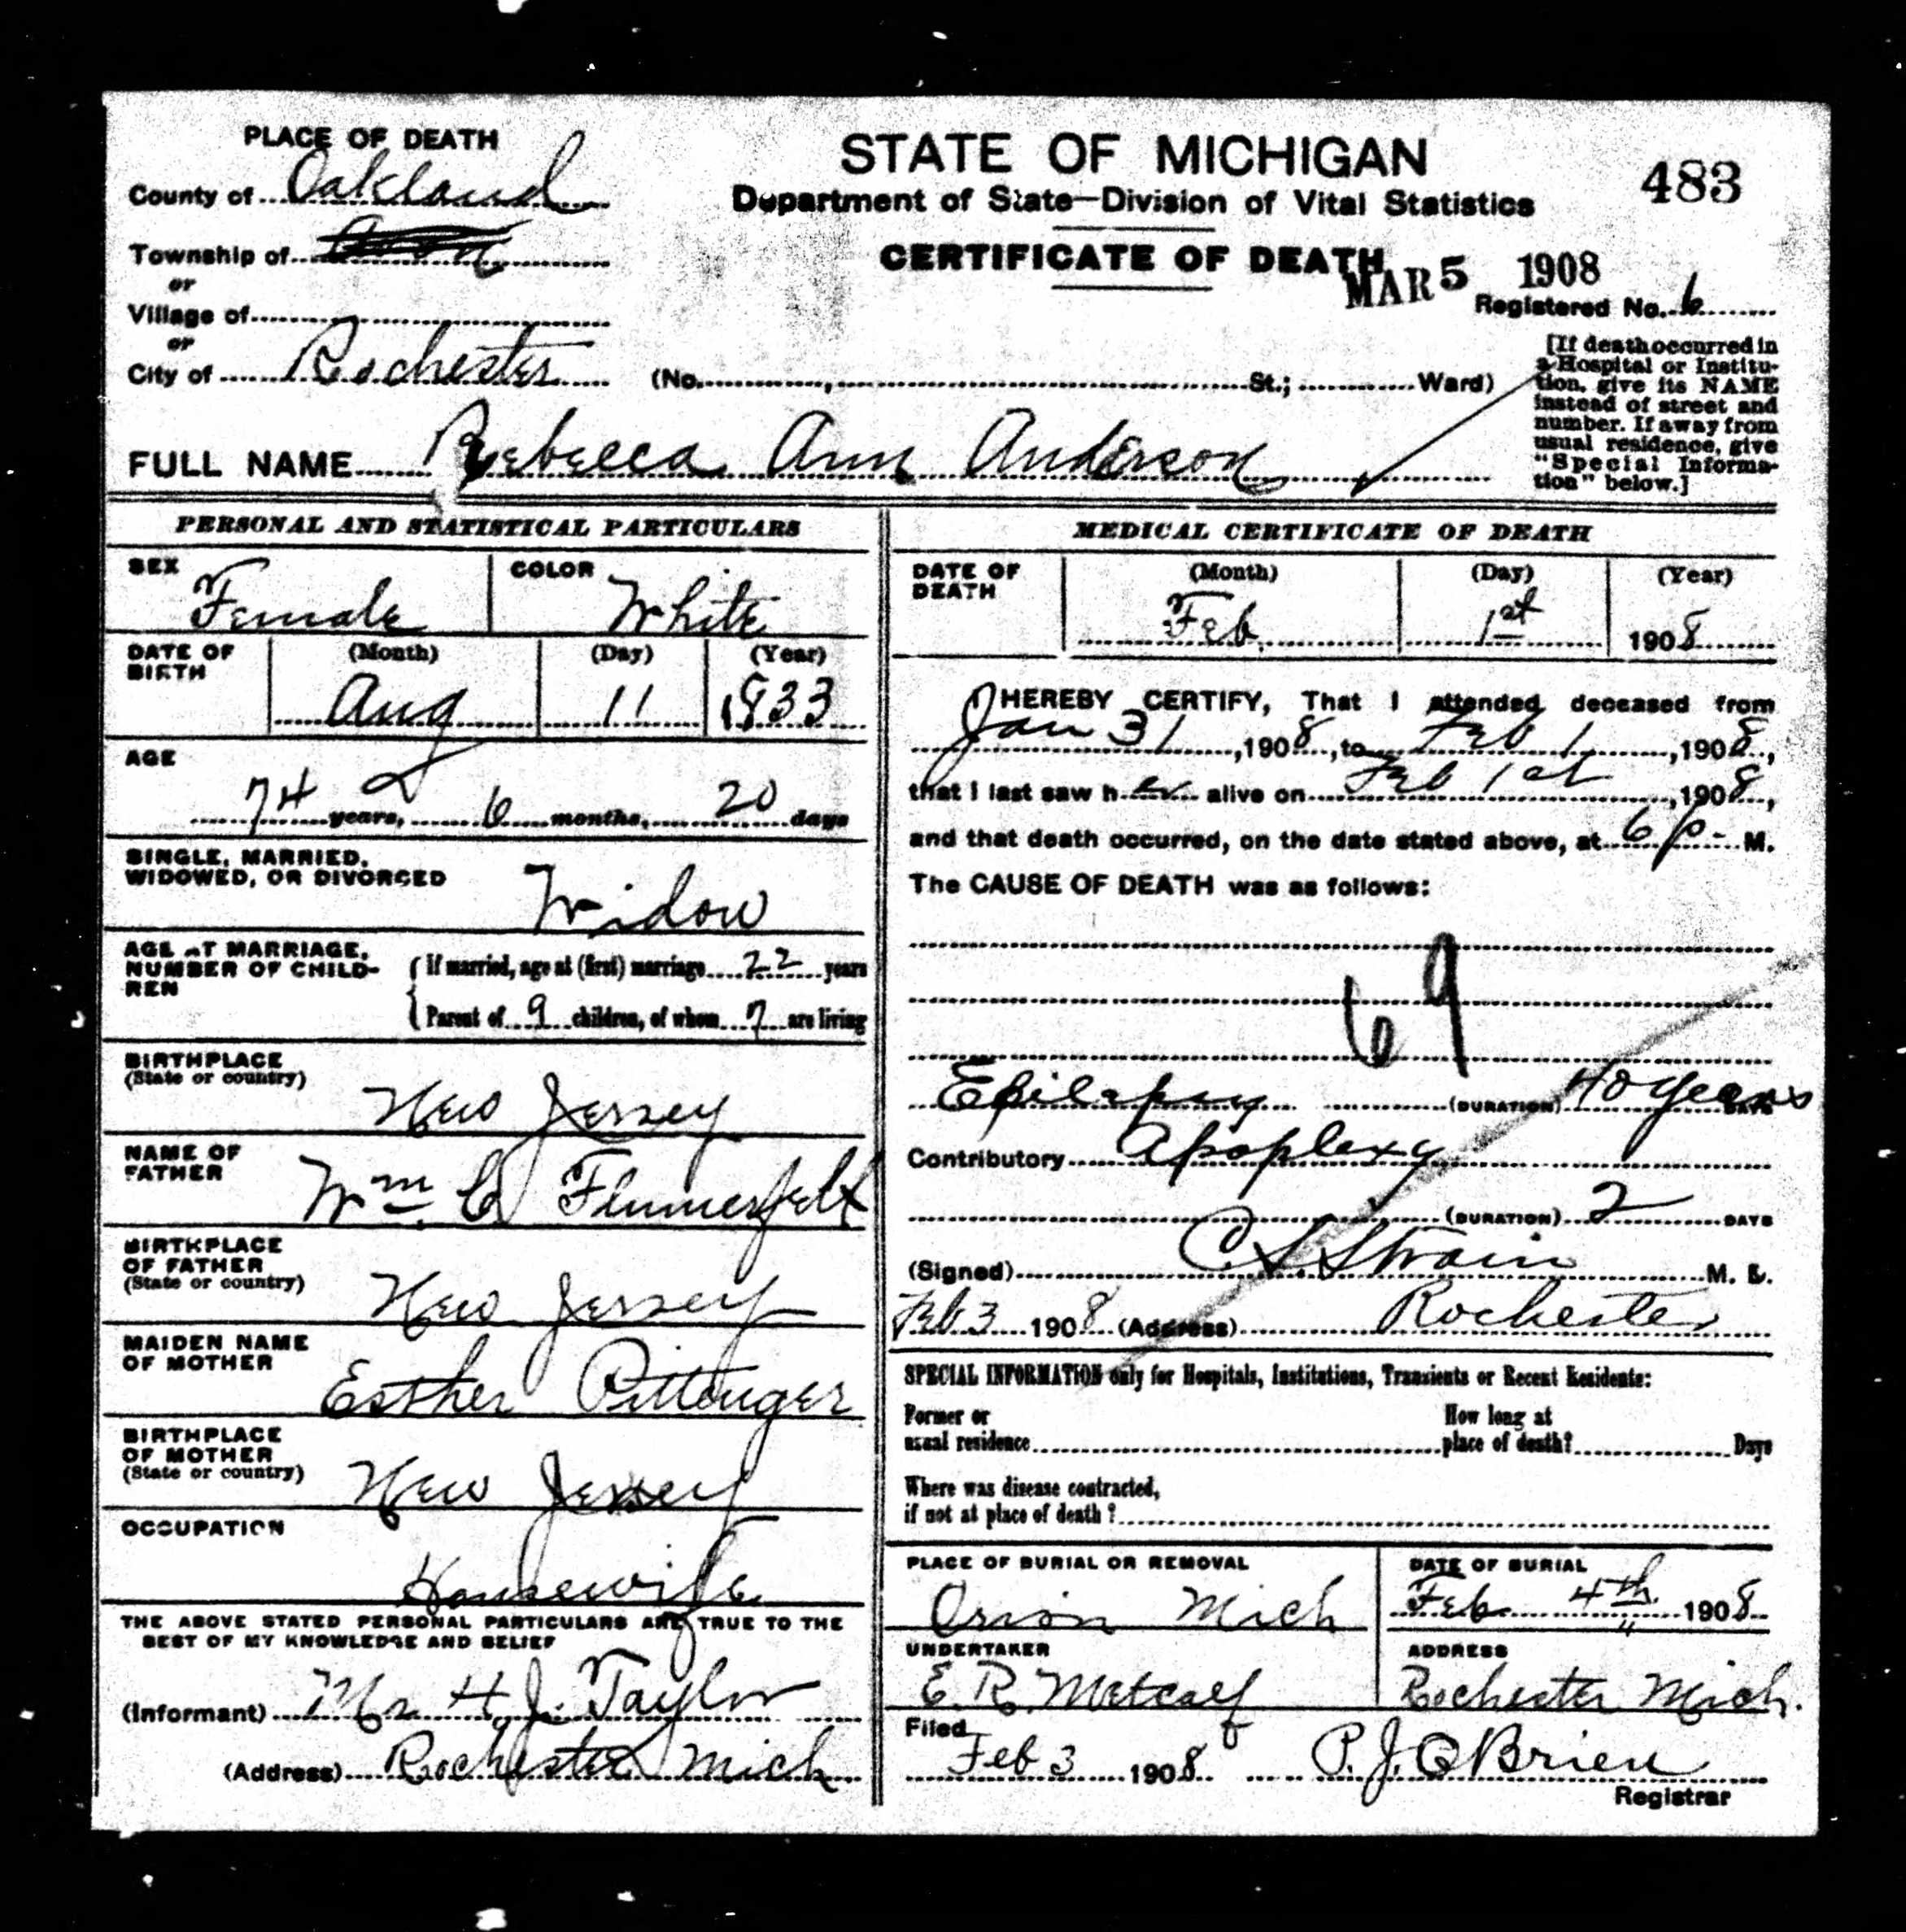 PLACE OF DEATH
County of Oakland
Township of
or
Village of
or
City of Rochester
STATE OF MICHIGAN
Department of State—Division of Vital Statistics
CERTIFICATE OF DEATH
483
MAR 5 1908
Registered No. 6
(No. , St.; Ward)
[If death occurred in
a Hospital or Institu-
tion, give its NAME
instead of street and
number. If away from
usual residence, give
"Special Informa-
tion" below.]
FULL NAME Rebecca Ann Anderson
PERSONAL AND STATISTICAL PARTICULARS
SEX Female
COLOR White
DATE OF BIRTH
(Month) (Day) (Year)
Aug 11 1833
AGE
74 years, 6 months, 20 days
SINGLE, MARRIED,
WIDOWED, OR DIVORCED
Widow
AGE AT MARRIAGE,
NUMBER OF CHILD-
REN
If married, age at (first) marriage 22 years
Parent of 9 children, of whom 7 are living
BIRTHPLACE
(State or country)
New Jersey
NAME OF
FATHER
Wm. C Flumerfelt
BIRTHPLACE
OF FATHER
(State or country)
New Jersey
MAIDEN NAME
OF MOTHER
Esther Pittenger
BIRTHPLACE
OF MOTHER
(State or country)
New Jersey
OCCUPATION
Housewife
THE ABOVE STATED PERSONAL PARTICULARS ARE TRUE TO THE
BEST OF MY KNOWLEDGE AND BELIEF
(Informant) H. J. Taylor
(Address) Rochester Mich
MEDICAL CERTIFICATE OF DEATH
DATE OF
DEATH
(Month) (Day) (Year)
Feb 1st 1908
I HEREBY CERTIFY, That I attended deceased from
Jan 31, 1908, to Feb 1, 1908,
that I last saw her alive on Feb 1st, 1908,
and that death occurred, on the date stated above, at 6 p. M.
The CAUSE OF DEATH was as follows:
69
Epilepsy (DURATION) 40 years DAYS
Contributory Apoplexy
(DURATION) 2 DAYS
(Signed) C S Strain M. D.
Feb 3 1908 (Address) Rochester
SPECIAL INFORMATION only for Hospitals, Institutions, Transients or Recent Residents:
Former or
usual residence
How long at
place of death? Days
Where was disease contracted,
if not at place of death?
PLACE OF BURIAL OR REMOVAL
Orion Mich
DATE OF BURIAL
Feb 4th 1908
UNDERTAKER
E. R. Metcalf
ADDRESS
Rochester Mich.
Filed
Feb 3 1908 P. J. O Brien
Registrar